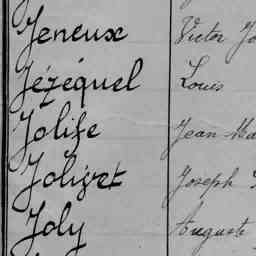 Jeneux Victor
Jézéquel Louis
Jolife Jean
Jolivet Joseph
Joly Auguste